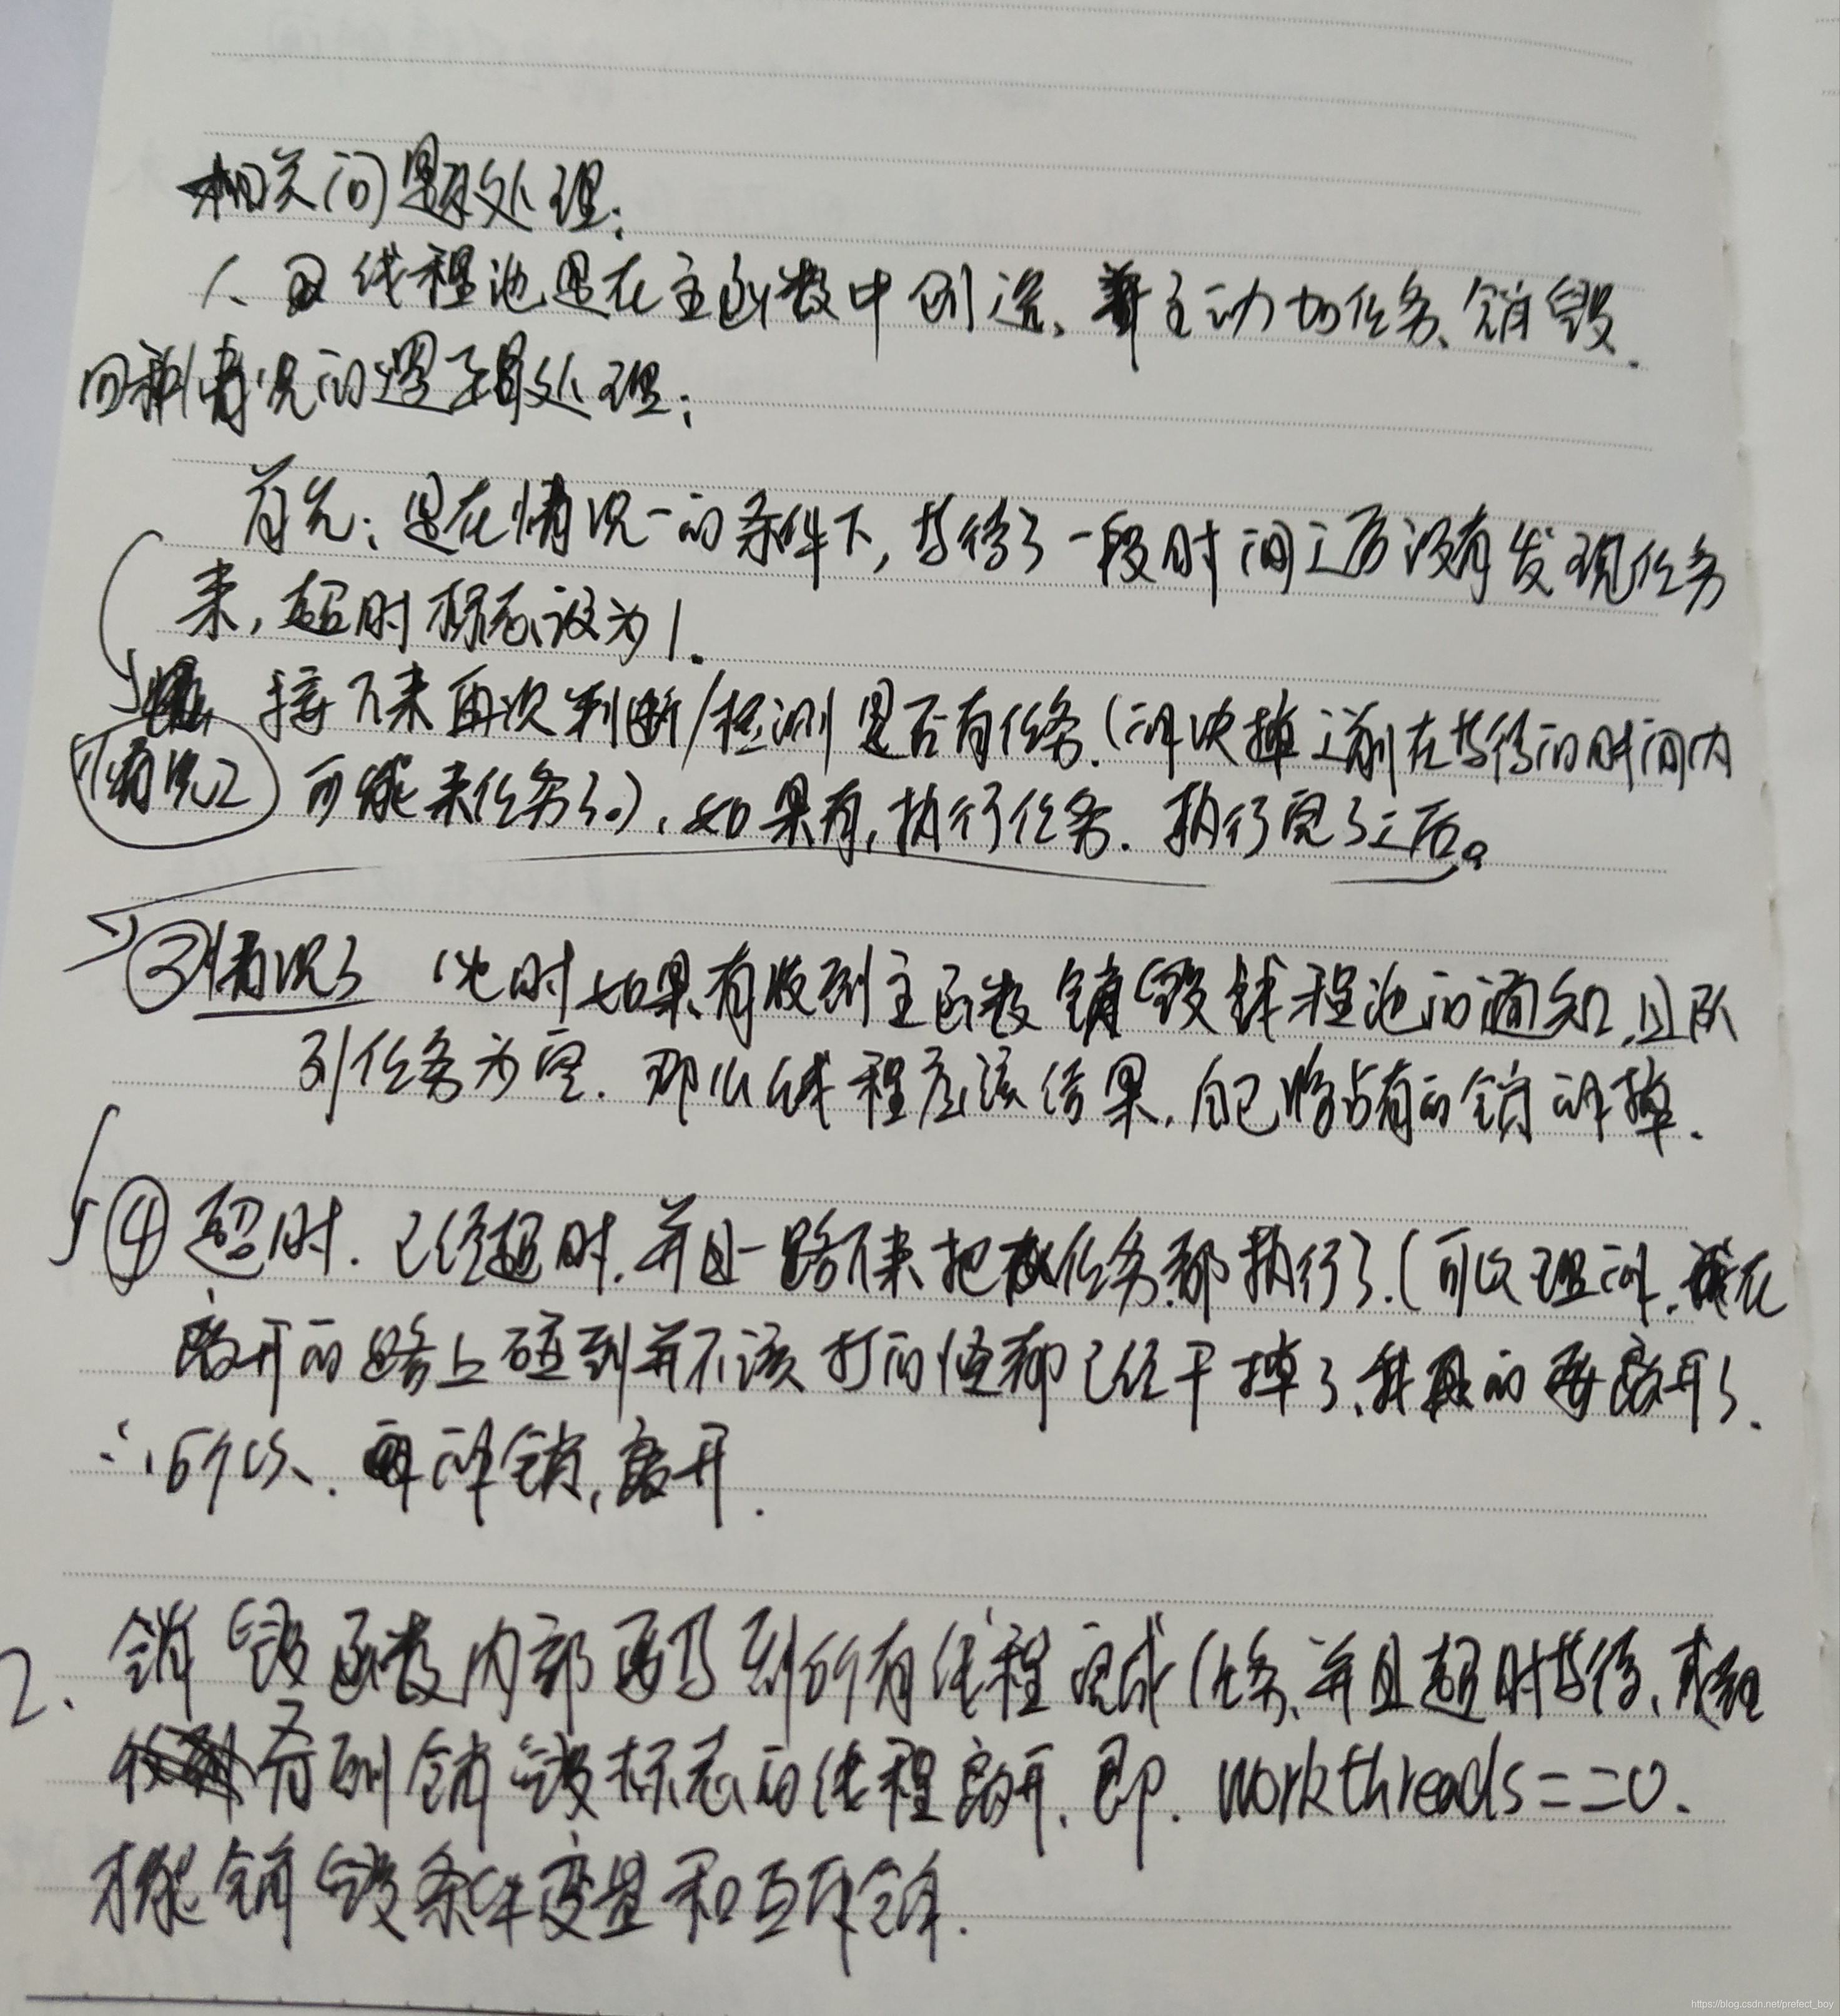 相关问题处理:
1、线程池是在主函数中创造、主动加任务、销毁.
四种情况的逻辑处理:
首先:是在情况一的条件下,等待了一段时间之后没有发现任务
来,超时标志设为1.
接下来再次判断/检测是否有任务.(解决掉之前在等待的时间内
情况2 可能来任务了。)、如果有,执行任务.执行完了之后。
③情况3 此时如果有收到主函数销毁线程池的通知,且队
列任务为空.那么线程应该结果,自己将占有的锁解掉.
④超时.已经超时.并且一路下来把任务都执行了.(可以理解.在
离开的路上碰到并不该打的怪都已经干掉了、我真的要离开了.
∴ 所以、再解锁,离开.
2.销毁函数内部要等到所有线程完成任务、并且超时等待、或者
看到销毁标志的线程离开.即.workthreads==0.
才能销毁条件变量和互斥锁.
https://blog.csdn.net/prefect_boy